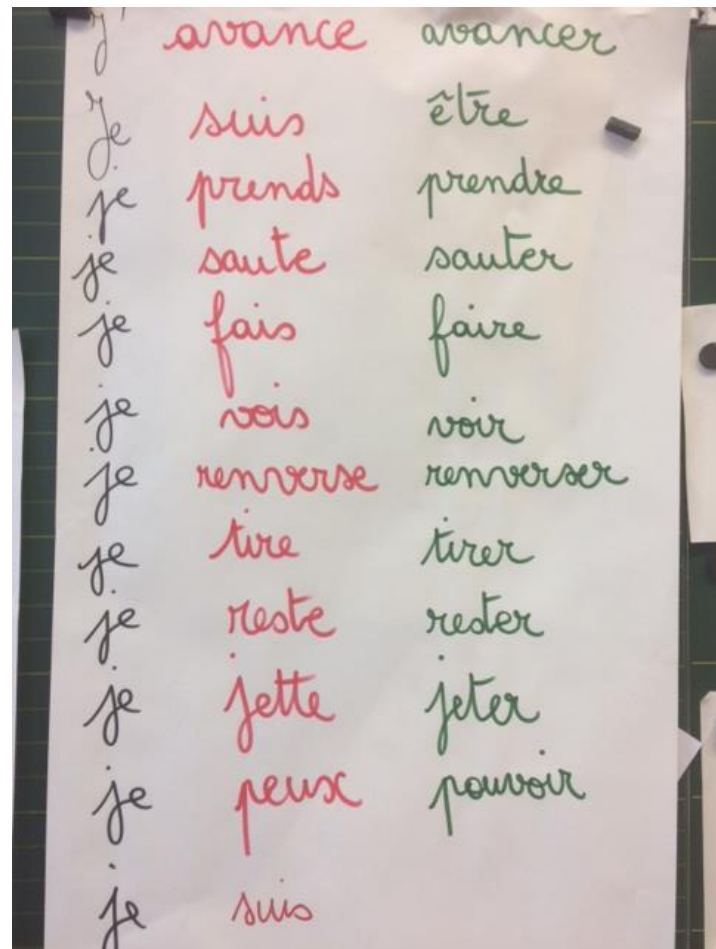 j' avance avancer
je suis être
je prends prendre
je saute sauter
je fais faire
je vois voir
je renverse renverser
je tire tirer
je reste rester
je jette jeter
je peux pouvoir
je suis